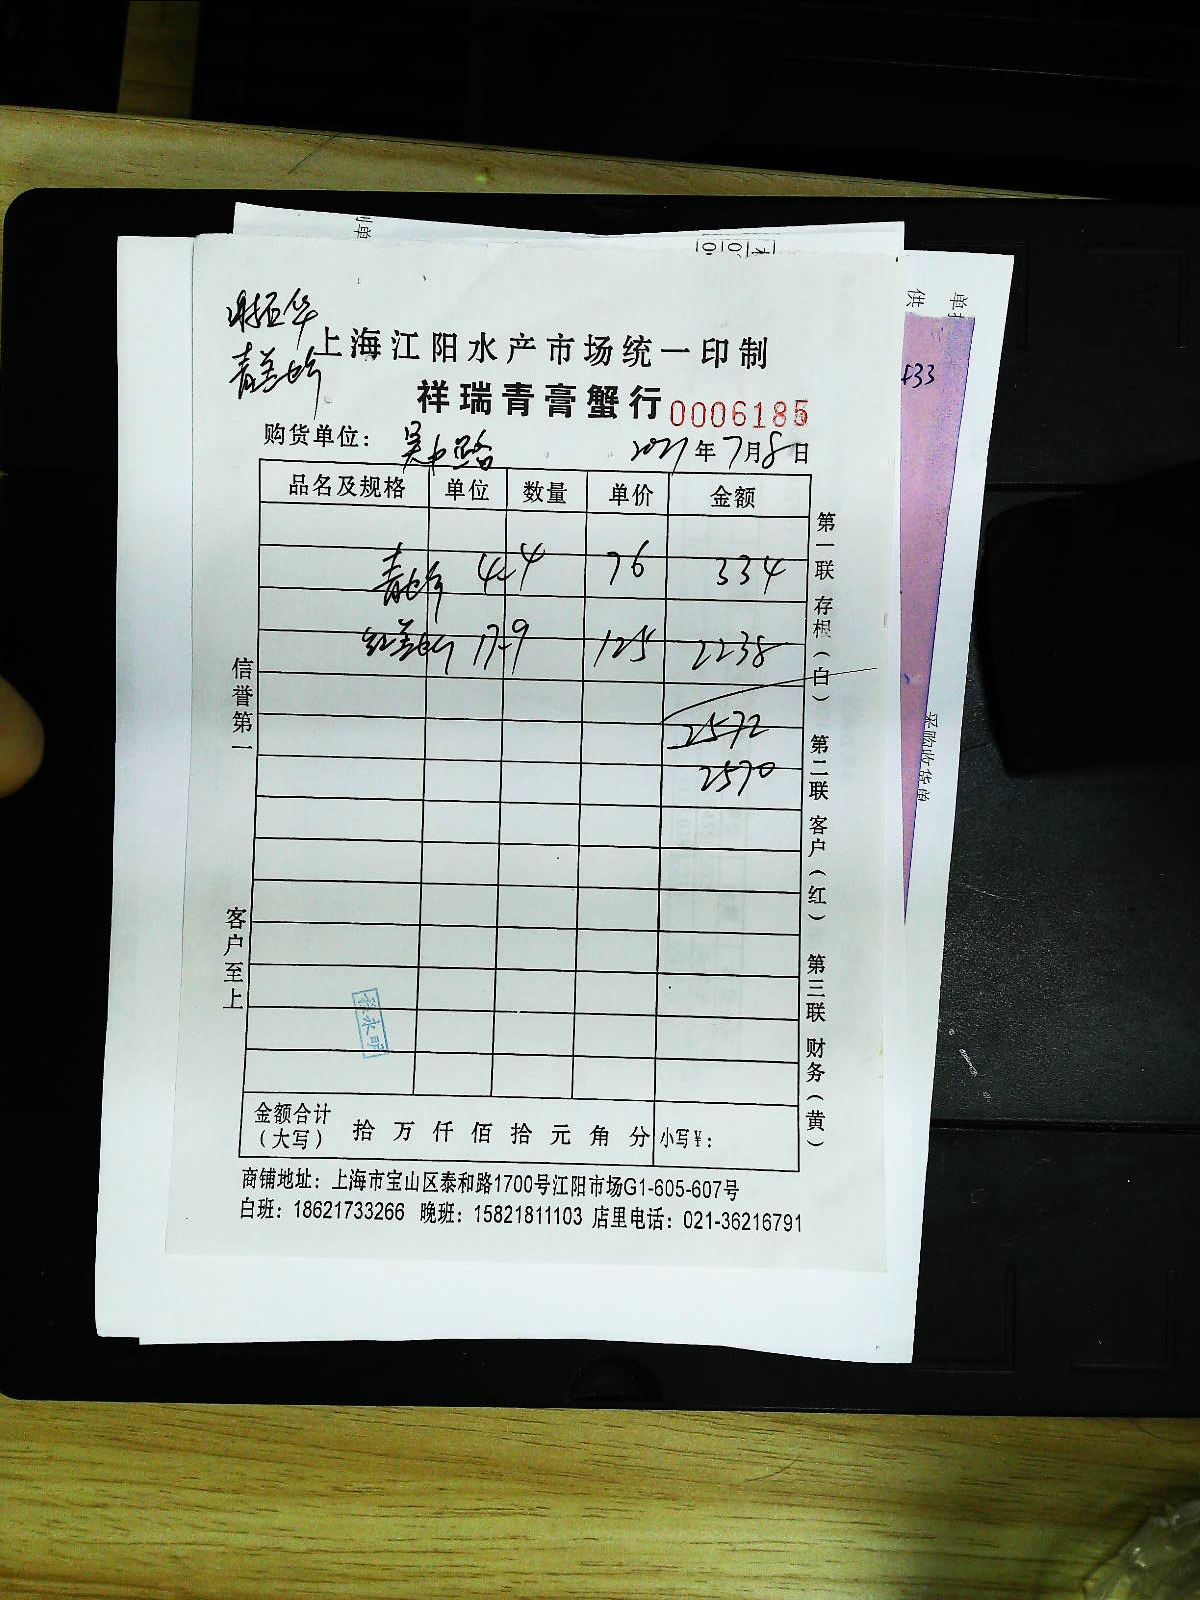 上海江阳水产市场统一印制
祥瑞青膏蟹行 0006185
购货单位： 吴中路 2021年7月8日
品名及规格 单位 数量 单价 金额
青蚧 4.4 76 334
红羔蚧 17.9 125 2238
2572
2570
金额合计（大写） 拾 万 仟 佰 拾 元 角 分 小写¥：
商铺地址：上海市宝山区泰和路1700号江阳市场G1-605-607号
白班：18621733266 晚班：15821811103 店里电话：021-36216791
信誉第一
客户至上
第一联 存根（白） 第二联 客户（红） 第三联 财务（黄）
采购收货单
433